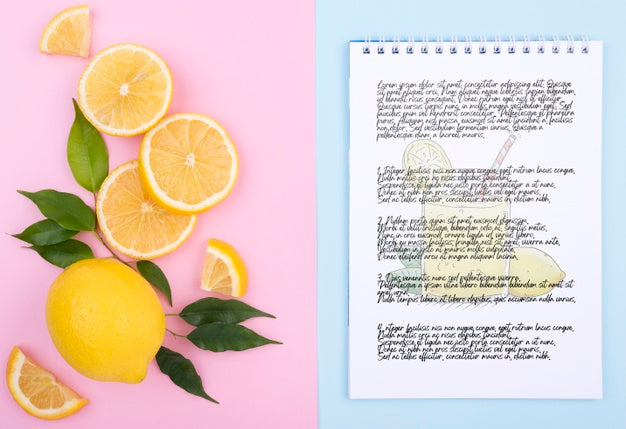 Lorem ipsum dolor sit amet, consectetur adipiscing elit. Quisque
sit amet aliquet orci. Nam aliquet neque lobortis sapien bibendum,
id blandit risus consequat. Donec rutrum eget nisl in efficitur.
Quisque cursus turpis nunc, in mollis neque commodo eget. Sed
faucibus enim vel hendrerit consectetur. Pellentesque et pharetra
purus. Aliquam nisl massa, euismod sit amet tincidunt a, facilisis
non dolor. Sed vestibulum fermentum varius. Quisque a
pellentesque diam, a rhoncus massa.
1. Integer facilisis nisi non augue congue, eget rutrum lacus congue.
Nulla mattis orci ac risus facilisis tincidunt.
Suspendisse et ligula nec justo porta consectetur a ut nunc.
Donec at nibh non eros suscipit luctus vel eget mauris.
Sed ac tellus efficitur, consectetur mauris in, dictum nibh.
2. Nullam porta quam sit amet euismod dignissim.
Morbi et velit tristique, bibendum odio at, sagittis metus.
Nunc in orci euismod, ornare ligula id, viverra libero.
Morbi eu massa facilisis, fringilla nisl sit amet, viverra ante.
Vestibulum in justo at mauris porttitor vulputate.
Donec eleifend orci ac magna aliquam,
3. Duis vehicula nunc sed pellentesque viverra.
Pellentesque a ipsum vitae libero bibendum bibendum a sit
amet urna.
Nulla tempus libero at libero dapibus, quis accumsan nulla varius.
4. Integer facilisis nisi non augue congue, eget rutrum lacus congue.
Nulla mattis orci ac risus facilisis tincidunt.
Suspendisse et ligula nec justo porta consectetur a ut nunc.
Donec at nibh non eros suscipit luctus vel eget mauris.
Sed ac tellus efficitur, consectetur mauris in, dictum nibh.